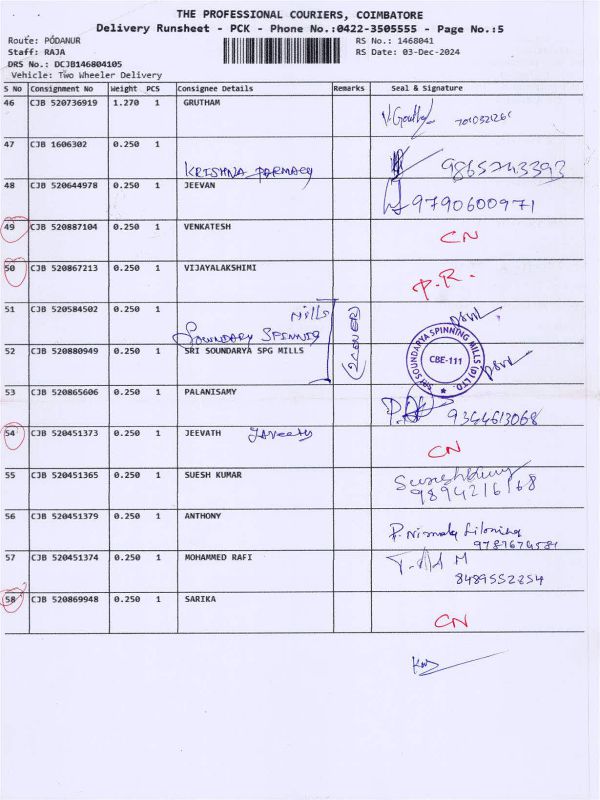 THE PROFESSIONAL COURIERS, COIMBATORE
Delivery Runsheet - PCK - Phone No.:0422-3505555 - Page No.:5
Route: PODANUR RS No.: 1468041
Staff: RAJA RS Date: 03-Dec-2024
DRS No.: DCJB146804105
Vehicle: Two Wheeler Delivery
S No Consignment No Weight PCS Consignee Details Remarks Seal & Signature
46 CJB 520736919 1.270 1 GRUTHAM
47 CJB 1606302 0.250 1 9865743393
KRISHNA PARMACY
48 CJB 520644978 0.250 1 JEEVAN 9790600971
49 CJB 520887104 0.250 1 VENKATESH CN
50 CJB 520867213 0.250 1 VIJAYALAKSHIMI P.R.
51 CJB 520584502 0.250 1 Mills
SOUNDARY SPINNIG
52 CJB 520880949 0.250 1 SRI SOUNDARYA SPG MILLS 2 COVER
SRI SOUNDARYA SPINNING MILLS (P) LTD
CBE-111
53 CJB 520865606 0.250 1 PALANISAMY 9344613068
54 CJB 520451373 0.250 1 JEEVATH CN
55 CJB 520451365 0.250 1 SUESH KUMAR Sureshkumar
9894216168
56 CJB 520451379 0.250 1 ANTHONY
57 CJB 520451374 0.250 1 MOHAMMED RAFI
8489552254
58 CJB 520869948 0.250 1 SARIKA CN